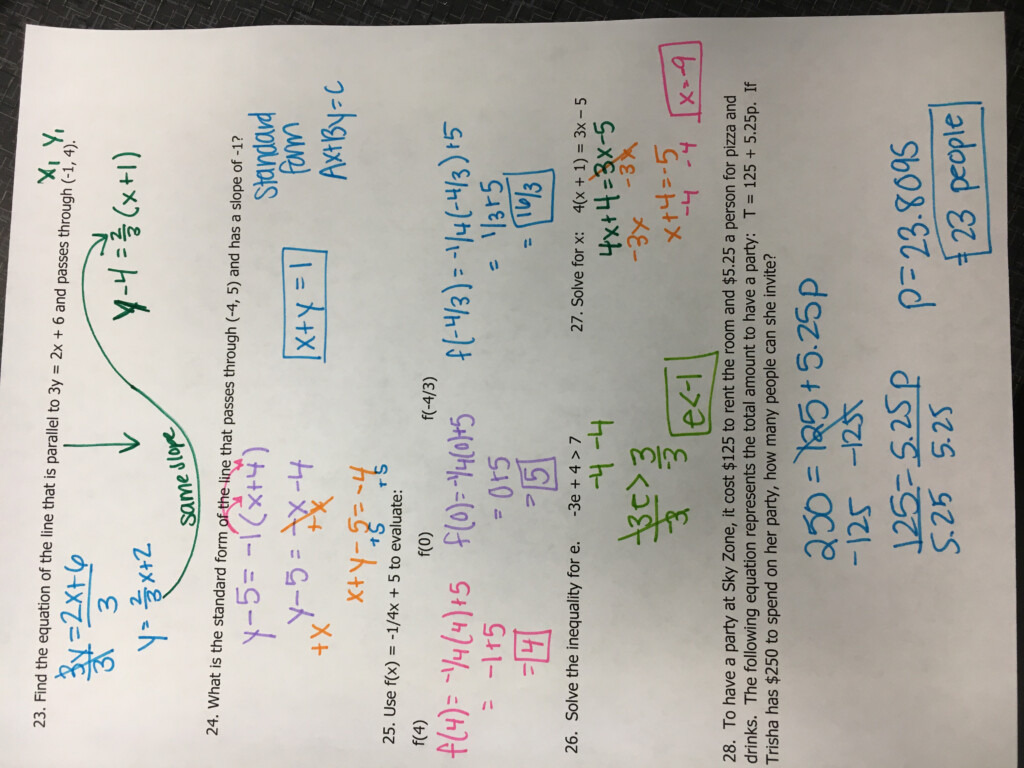 23. Find the equation of the line that is parallel to 3y = 2x + 6 and passes through (-1, 4).
x₁ y₁
3y = 2x+6
3 3
y = 2/3 x+2
same slope
y - 4 = 2/3 (x+1)
24. What is the standard form of the line that passes through (-4, 5) and has a slope of -1?
y - 5 = -1(x+4)
y - 5 = -x - 4
+x +x
x+y-5 = -4
+5 +5
x+y = 1
Standard
Form
Ax+By=C
25. Use f(x) = -1/4x + 5 to evaluate:
f(4) f(0) f(-4/3)
f(4) = -1/4(4)+5
= -1+5
= 4
f(0) = -1/4(0)+5
= 0+5
= 5
f(-4/3) = -1/4(-4/3)+5
= 1/3+5
= 16/3
26. Solve the inequality for e. -3e + 4 > 7
-4 -4
-3e > 3
-3 -3
e < -1
27. Solve for x: 4(x + 1) = 3x – 5
4x+4 = 3x-5
-3x -3x
x+4 = -5
-4 -4
x = -9
28. To have a party at Sky Zone, it cost $125 to rent the room and $5.25 a person for pizza and
drinks. The following equation represents the total amount to have a party: T = 125 + 5.25p. If
Trisha has $250 to spend on her party, how many people can she invite?
250 = 125 + 5.25p
-125 -125
125 = 5.25p
5.25 5.25
p = 23.8095
= 23 people